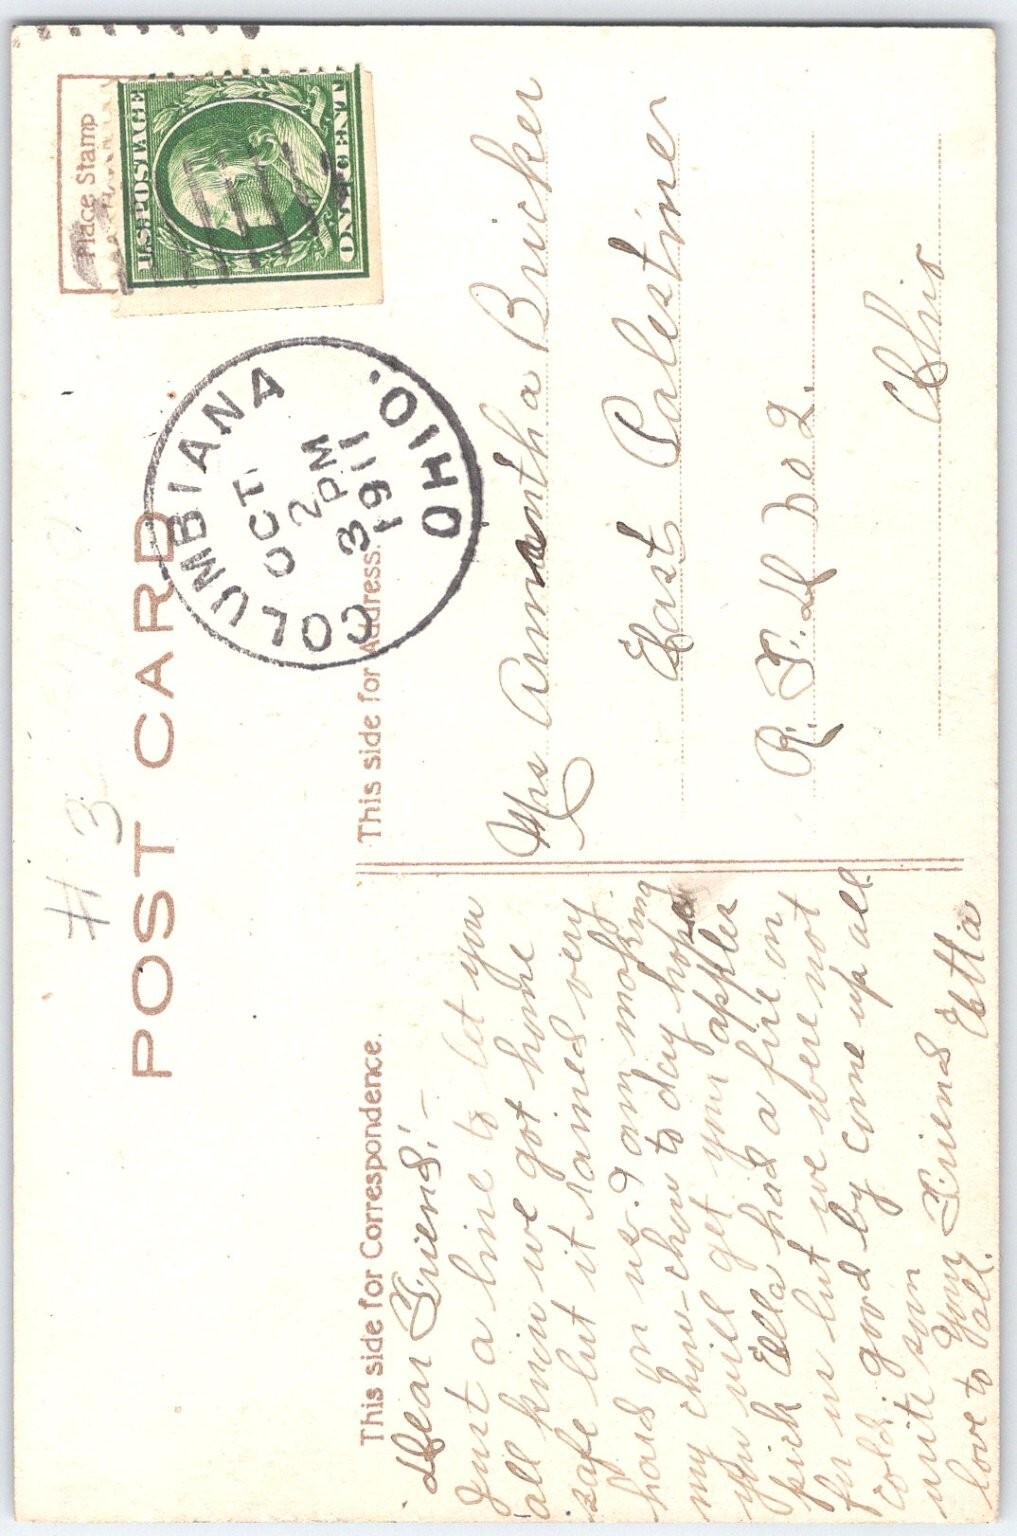 #3
POST CARD
Place Stamp
U.S. POSTAGE
ONE CENT
COLUMBIANA
OCT
2
3 PM
1911
OHIO.
This side for Correspondence.
This side for Address.
Dear Friend!—
Just a line to let you
all know we got home
safe but it rained very
hard on us. I am making
my chow-chow to day hope
you will get your apples
pick Ella had a fire on
for us but we were not
cold good by come up all
write soon
Your Friend Etta
love to all.
Mrs Amantha Bricker
East Palestine
R. F. D No 2.
Ohio